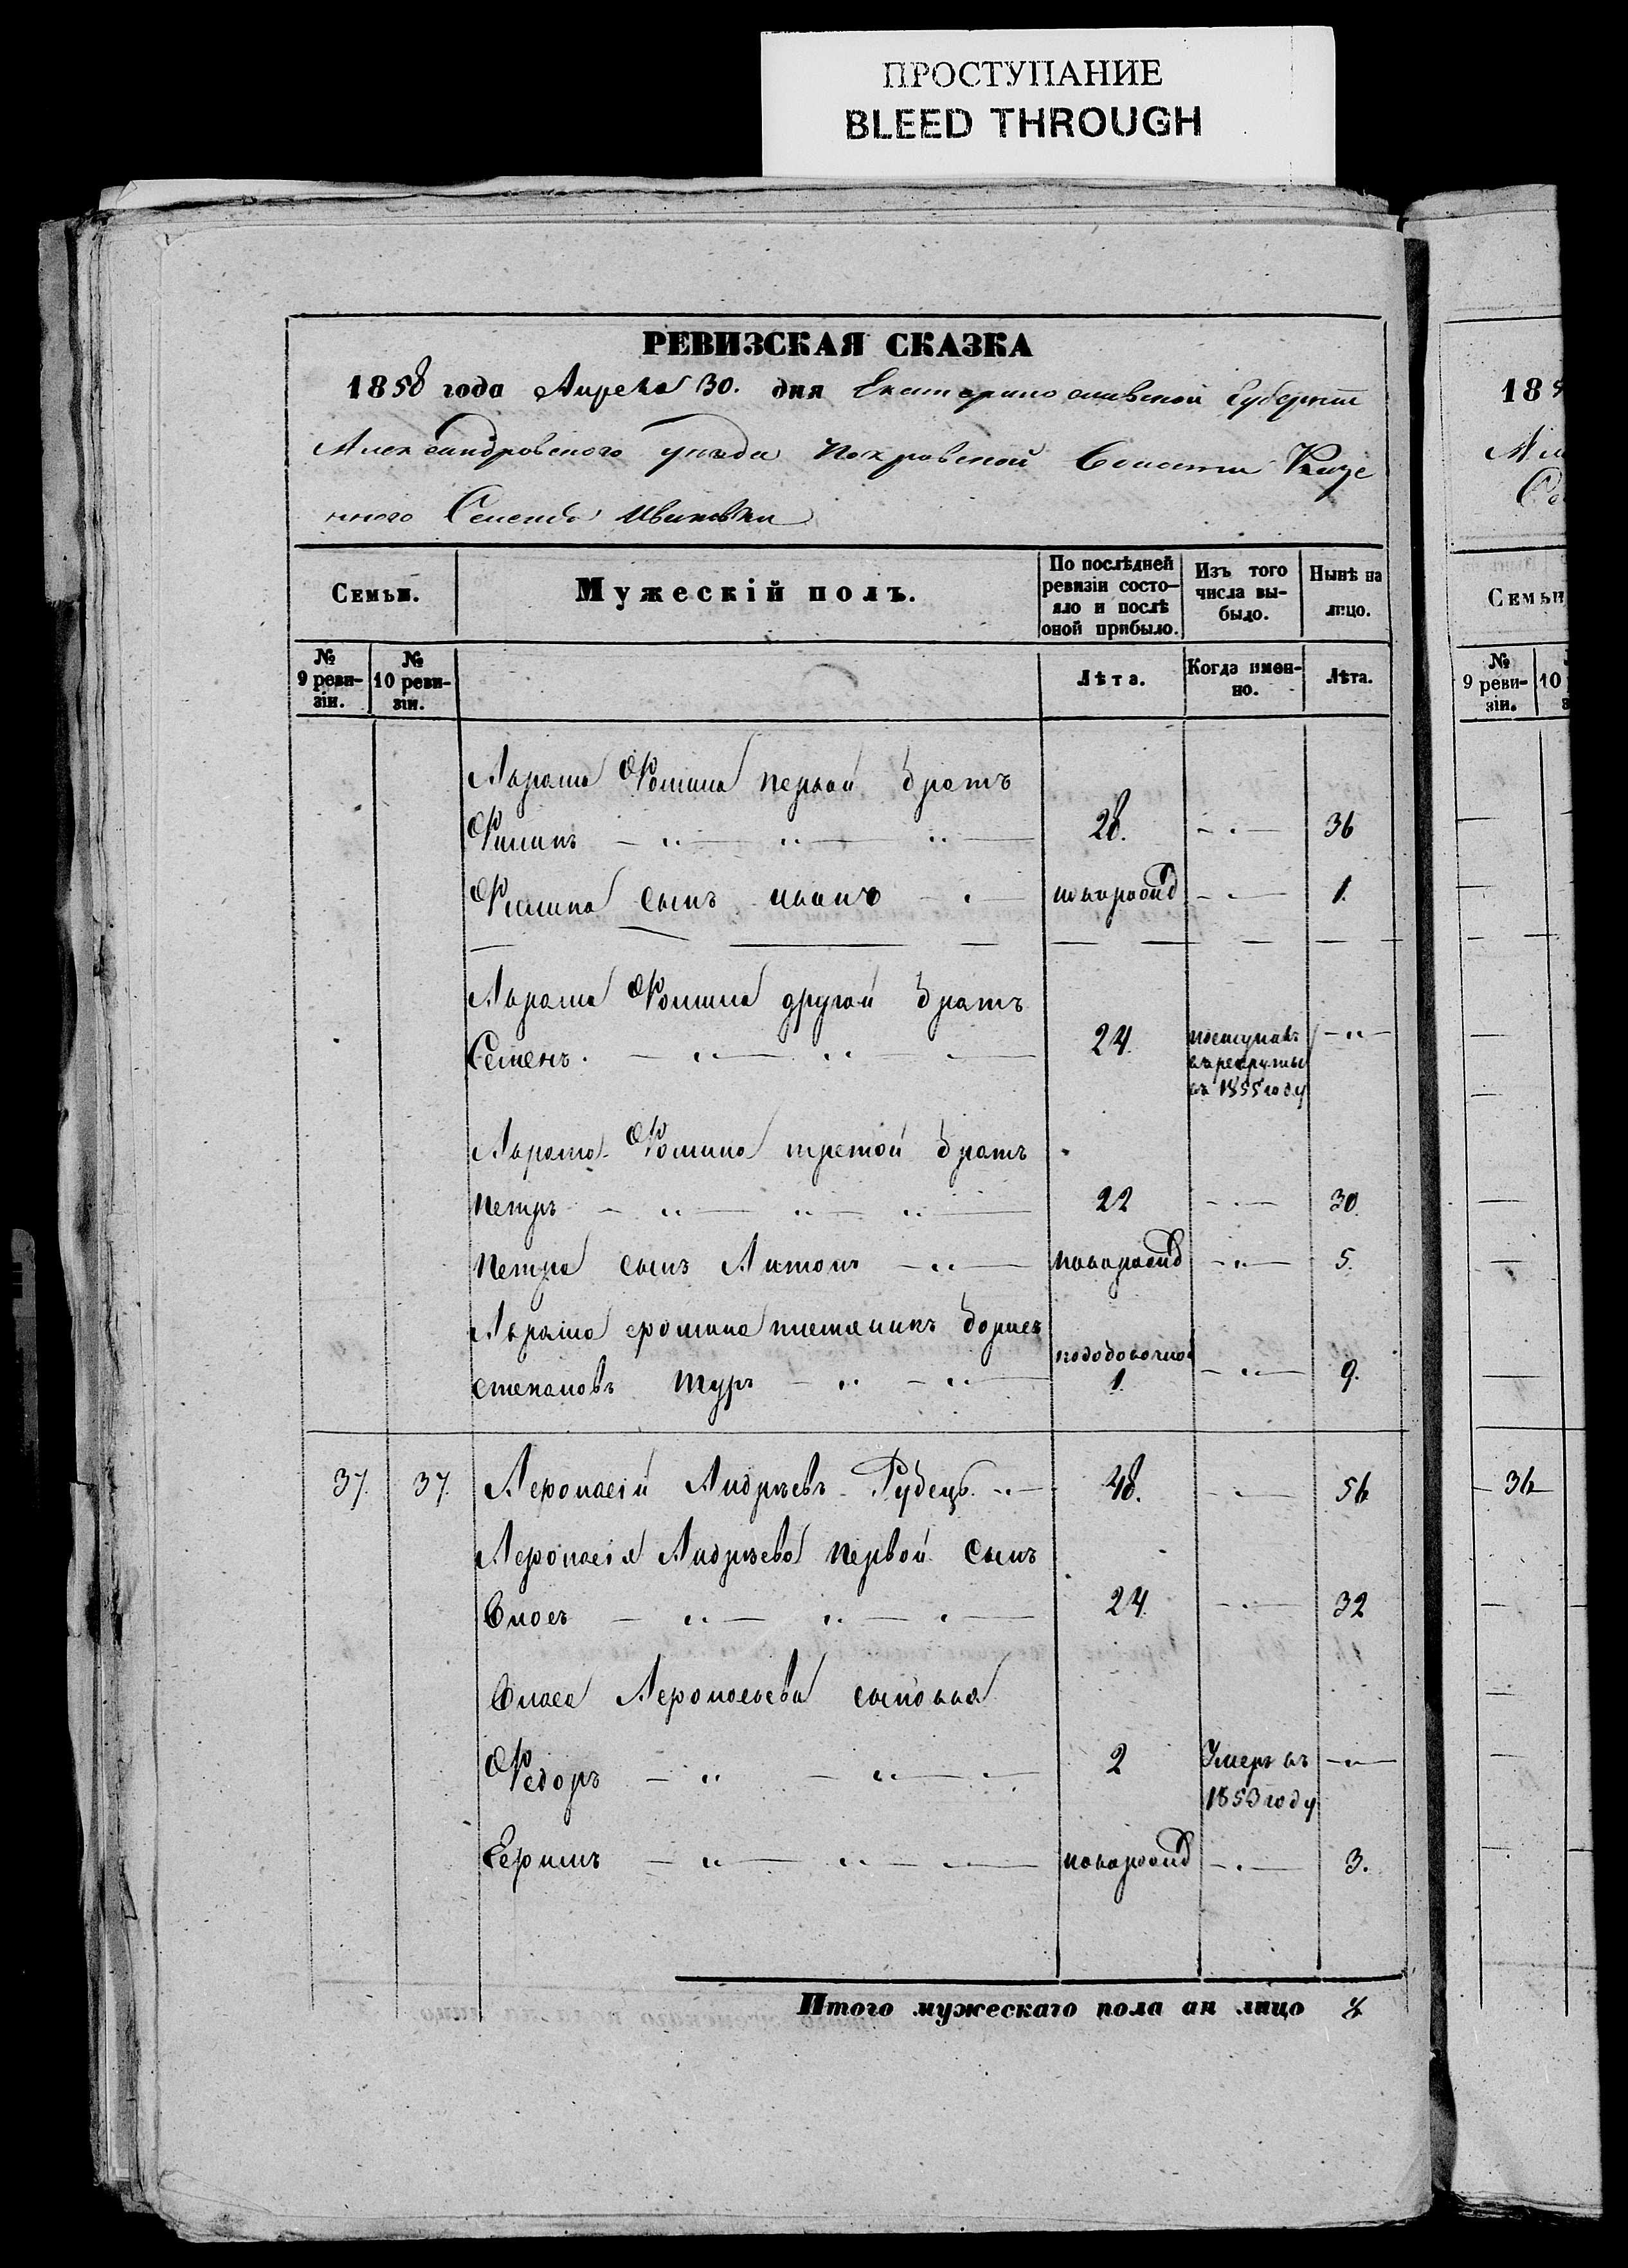 ПРОСТУПАНИЕ
BLEED THROUGH
РЕВИЗСКАЯ СКАЗКА
1858 года Апреля 30. дня Екатеринославской Губернии
Александровского уезда Покровской Волости Казе
нного Селенія Ивановки
Семьи.
Мужескій полъ.
По послѣдней ревизіи состо-яло и послѣ оной прибыло.
Изъ того числа вы-было.
Нынѣ на лицо.
№ 9 реви-зіи.
№ 10 реви-зіи.
Лѣта.
Когда имен-но.
Лѣта.
Аврама Фомина первой братъ
Филипъ 28. 36
Филипа сынъ Иванъ новорожд 1.
Аврама Фомина другой братъ
Семенъ. 24. поступилъ
въ рекруты
въ 1855 году
Аврама Фомина третой братъ
Петръ 22 30.
Петра сынъ Антонъ новорожд 5.
Аврама Фомина племяникъ Борисъ
Степановъ Туръ 1. 9.
37. 37. Афонасій Андреевъ Рубецъ 48. 56
Афонасія Андреева первой сынъ
Власъ 24. 32
Власа Афонасьева сыновья
Федоръ 2 Умеръ въ
1853 году
Ефимъ новорожд 3.
Итого мужескаго пола ан лицо 8
18
Семьи
№ 9 реви-зіи.
10
36